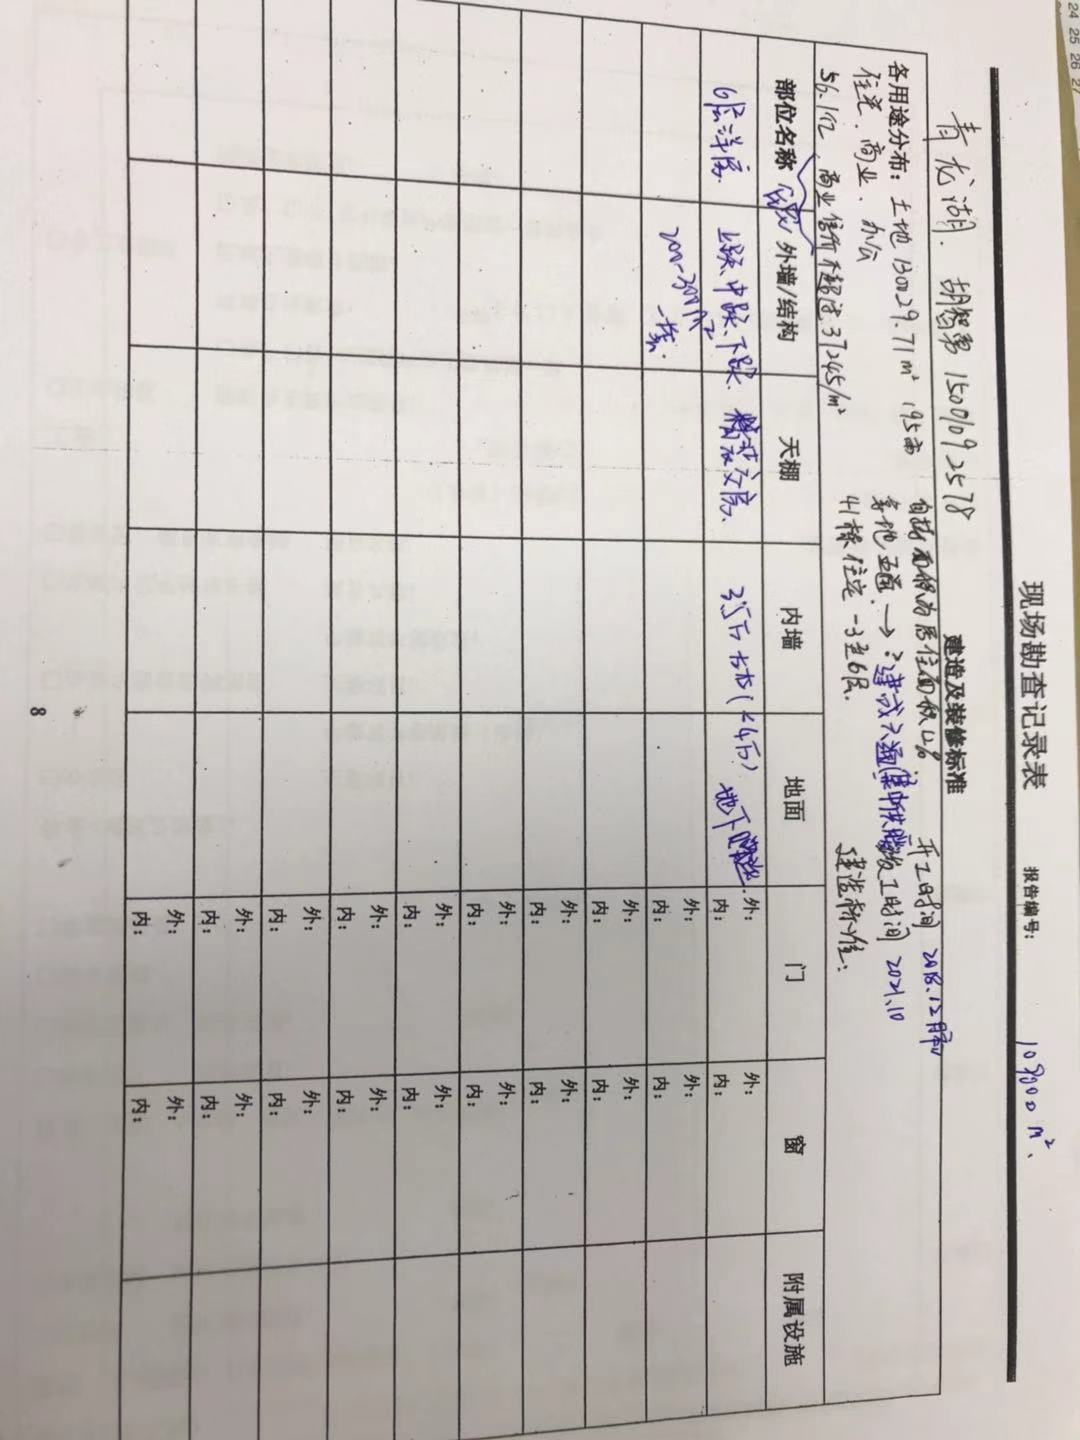 24 25 26 27
现场勘查记录表
报告编号:
109000 m²
青龙湖. 胡智勇 1501092578
建造及装修标准
各用途分布: 土地 130029.71m² 195亩
住宅、商业、办公
56.1亿, 商业售价不超过37245/m²
自持面积为居住面积12%
宗地五通 → ? 建成六通
41栋住宅 -3至6层.
开工时间 2018.12月
竣工时间 2021.10
建造标准:
部位名称 外墙/结构 天棚 内墙 地面 门 窗 附属设施
6层洋房 上跃、中跃、下跃. 精装交房. 3.5万 左右(<4万) 地下 外: 外:
内: 内:
200-300m² 外: 外:
内: 内:
外: 外:
内: 内:
外: 外:
内: 内:
外: 外:
内: 内:
外: 外:
内: 内:
外: 外:
内: 内:
外: 外:
内: 内:
外: 外:
内: 内:
外: 外:
内: 内:
8